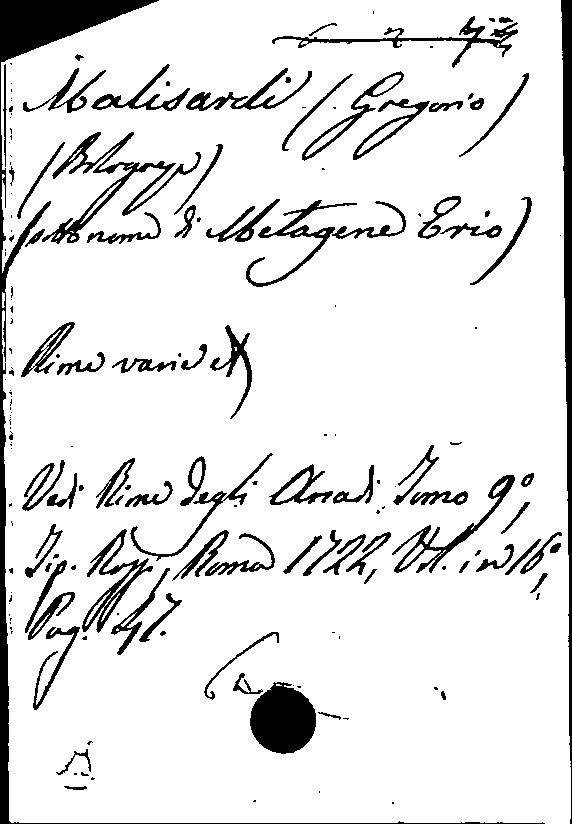 Malisardi (Gregorio)
(Bolognese)
(sotto nome di Metagene Erio)
Rime varie
Vedi Rime degli Arcadi Tomo 9º,
Tip. Rossi, Roma 1722, Vol. in 16º,
Pag. 247.